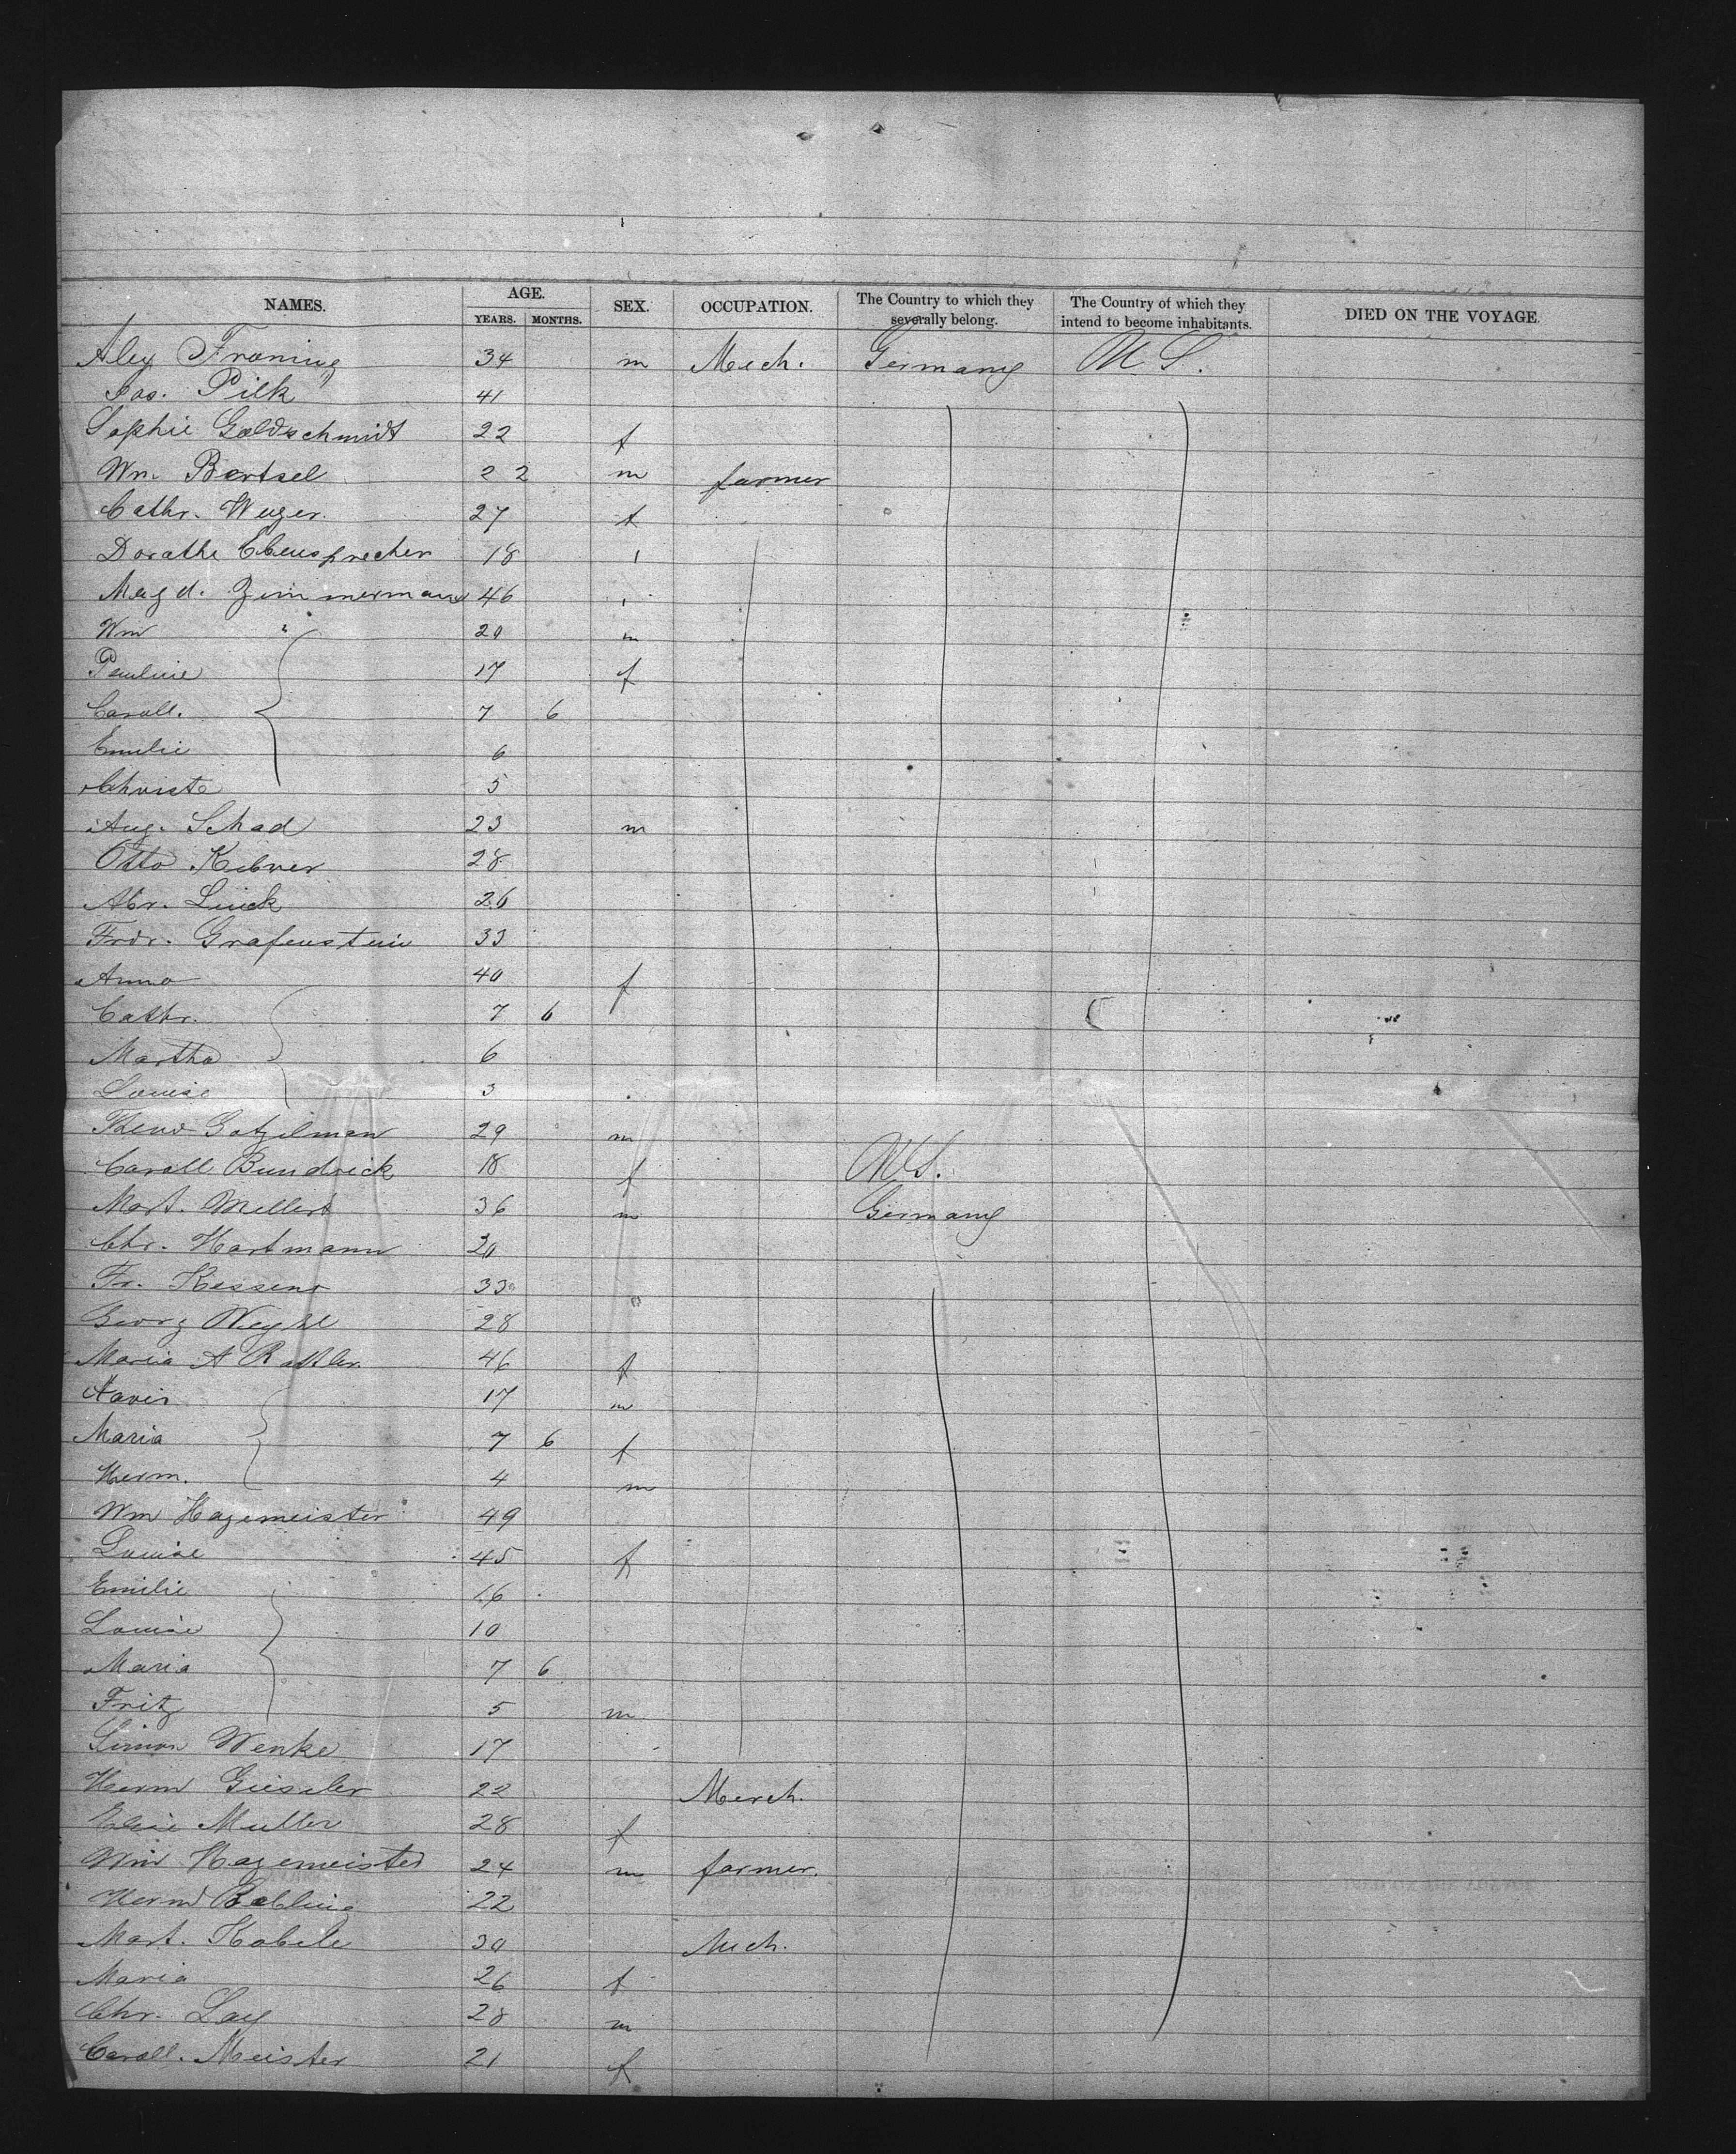 NAMES. AGE. SEX. OCCUPATION. The Country to which they severally belong. The Country of which they intend to become inhabitants. DIED ON THE VOYAGE.
YEARS. MONTHS.
Alex Froning 34 m Mech. Germany U.S.
Jos. Pilk 41
Sophie Goldschmidt 22 f
Wm. Bertsel 22 m farmer
Cathr. Wuger. 27 f
Dorathe Ebensprecher 18 "
Magd. Zimmerman 46 "
Wm " 20 m
Pauline 17 f
Caroll. 7 6
Emilie 6
Christe 5
Aug. Schad 23 m
Otto Kebner 28
Abr. Linck 26
Frdr. Grafenstein 33
Anna 40 f
Cathr. 7 6
Martha 6
Louise 3
Theno Gotzilman 29 m
Caroll Bundrick 18 f U.S.
Mart. Mellert 36 m Germany
Chr. Hartmann 20
Fr. Kessens 33
Georg Weyhl 28
Maria A Rattler 46 f
Xavir 17 m
Maria 7 6 f
Herm. 4 m
Wm Hagemeister 49
Louise 45 f
Emilie 16
Louise 10
Maria 7 6
Fritz 5 m
Simon Wenke 17
Herm Giesler 22 Merch.
Elise Muller 28 f
Wm Hagemeister 24 m farmer.
Herm Rebling 22
Mart. Kobele 30 Mech.
Maria 26 f
Chr. Lay 28 m
Caroll. Meister 21 f